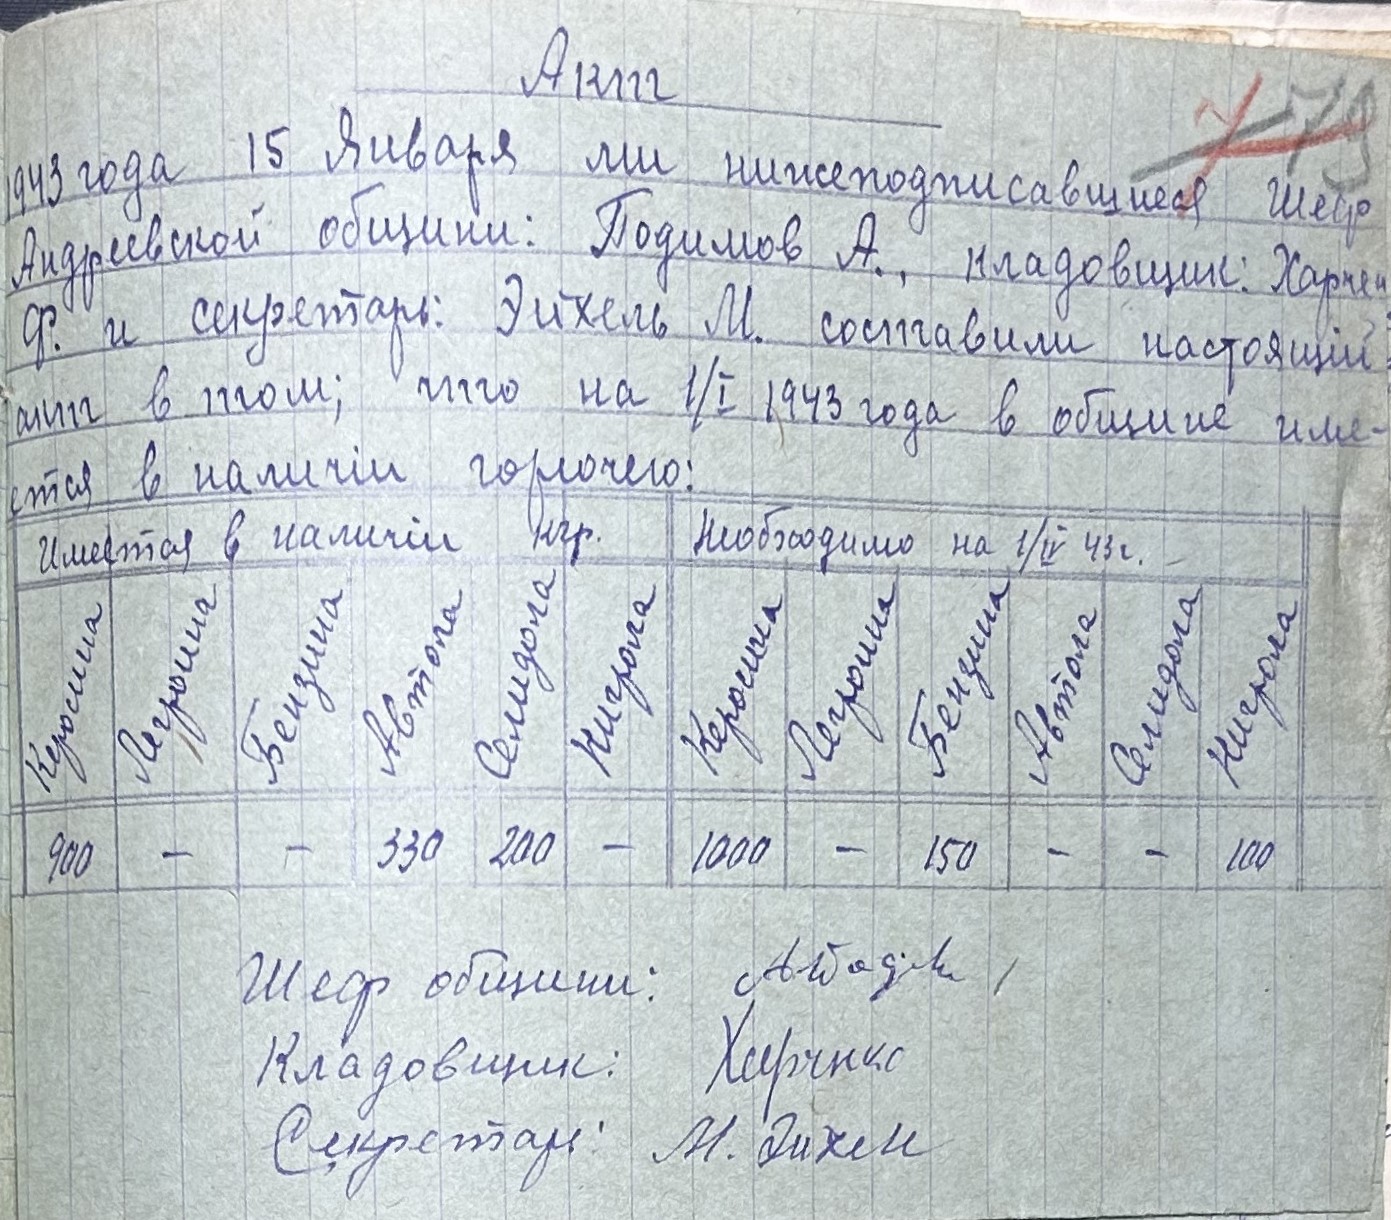 Акт
79
1943 года 15 Января мы нижеподписавшиеся Шеф
Андреевской общины: Подимов А., кладовщик: Харчен
Ф. и секретарь: Эйхель М. составили настоящій
акт в том; что на 1/I 1943 года в общине име-
ется в наличіи горючего:
Имеется в наличіи кгр. Необходимо на 1/IV 43 г.
Керосина Легроина Бензина Автола Солидола Нигрола Керосина Легроина Бензина Автола Солидола Нигрола
900 — — 330 200 — 1000 — 150 — — 100
Шеф общины:
Кладовщик: Харчнко
Секретарь: М. Эйхель